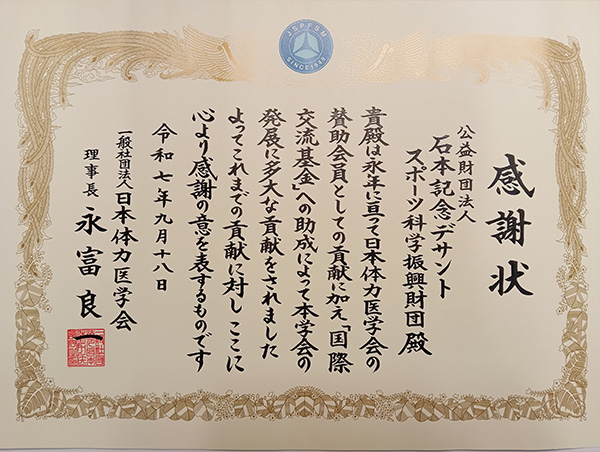 JSPFSM
SINCE 1949
感謝状
公益財団法人
石本記念デサント
スポーツ科学振興財団殿
貴殿は永年に亘って日本体力医学会の
賛助会員としての貢献に加え「国際
交流基金」への助成によって本学会の
発展に多大な貢献をされました
よってこれまでの貢献に対しここに
心より感謝の意を表するものです
令和七年九月十八日
一般社団法人日本体力医学会
理事長 永富良一